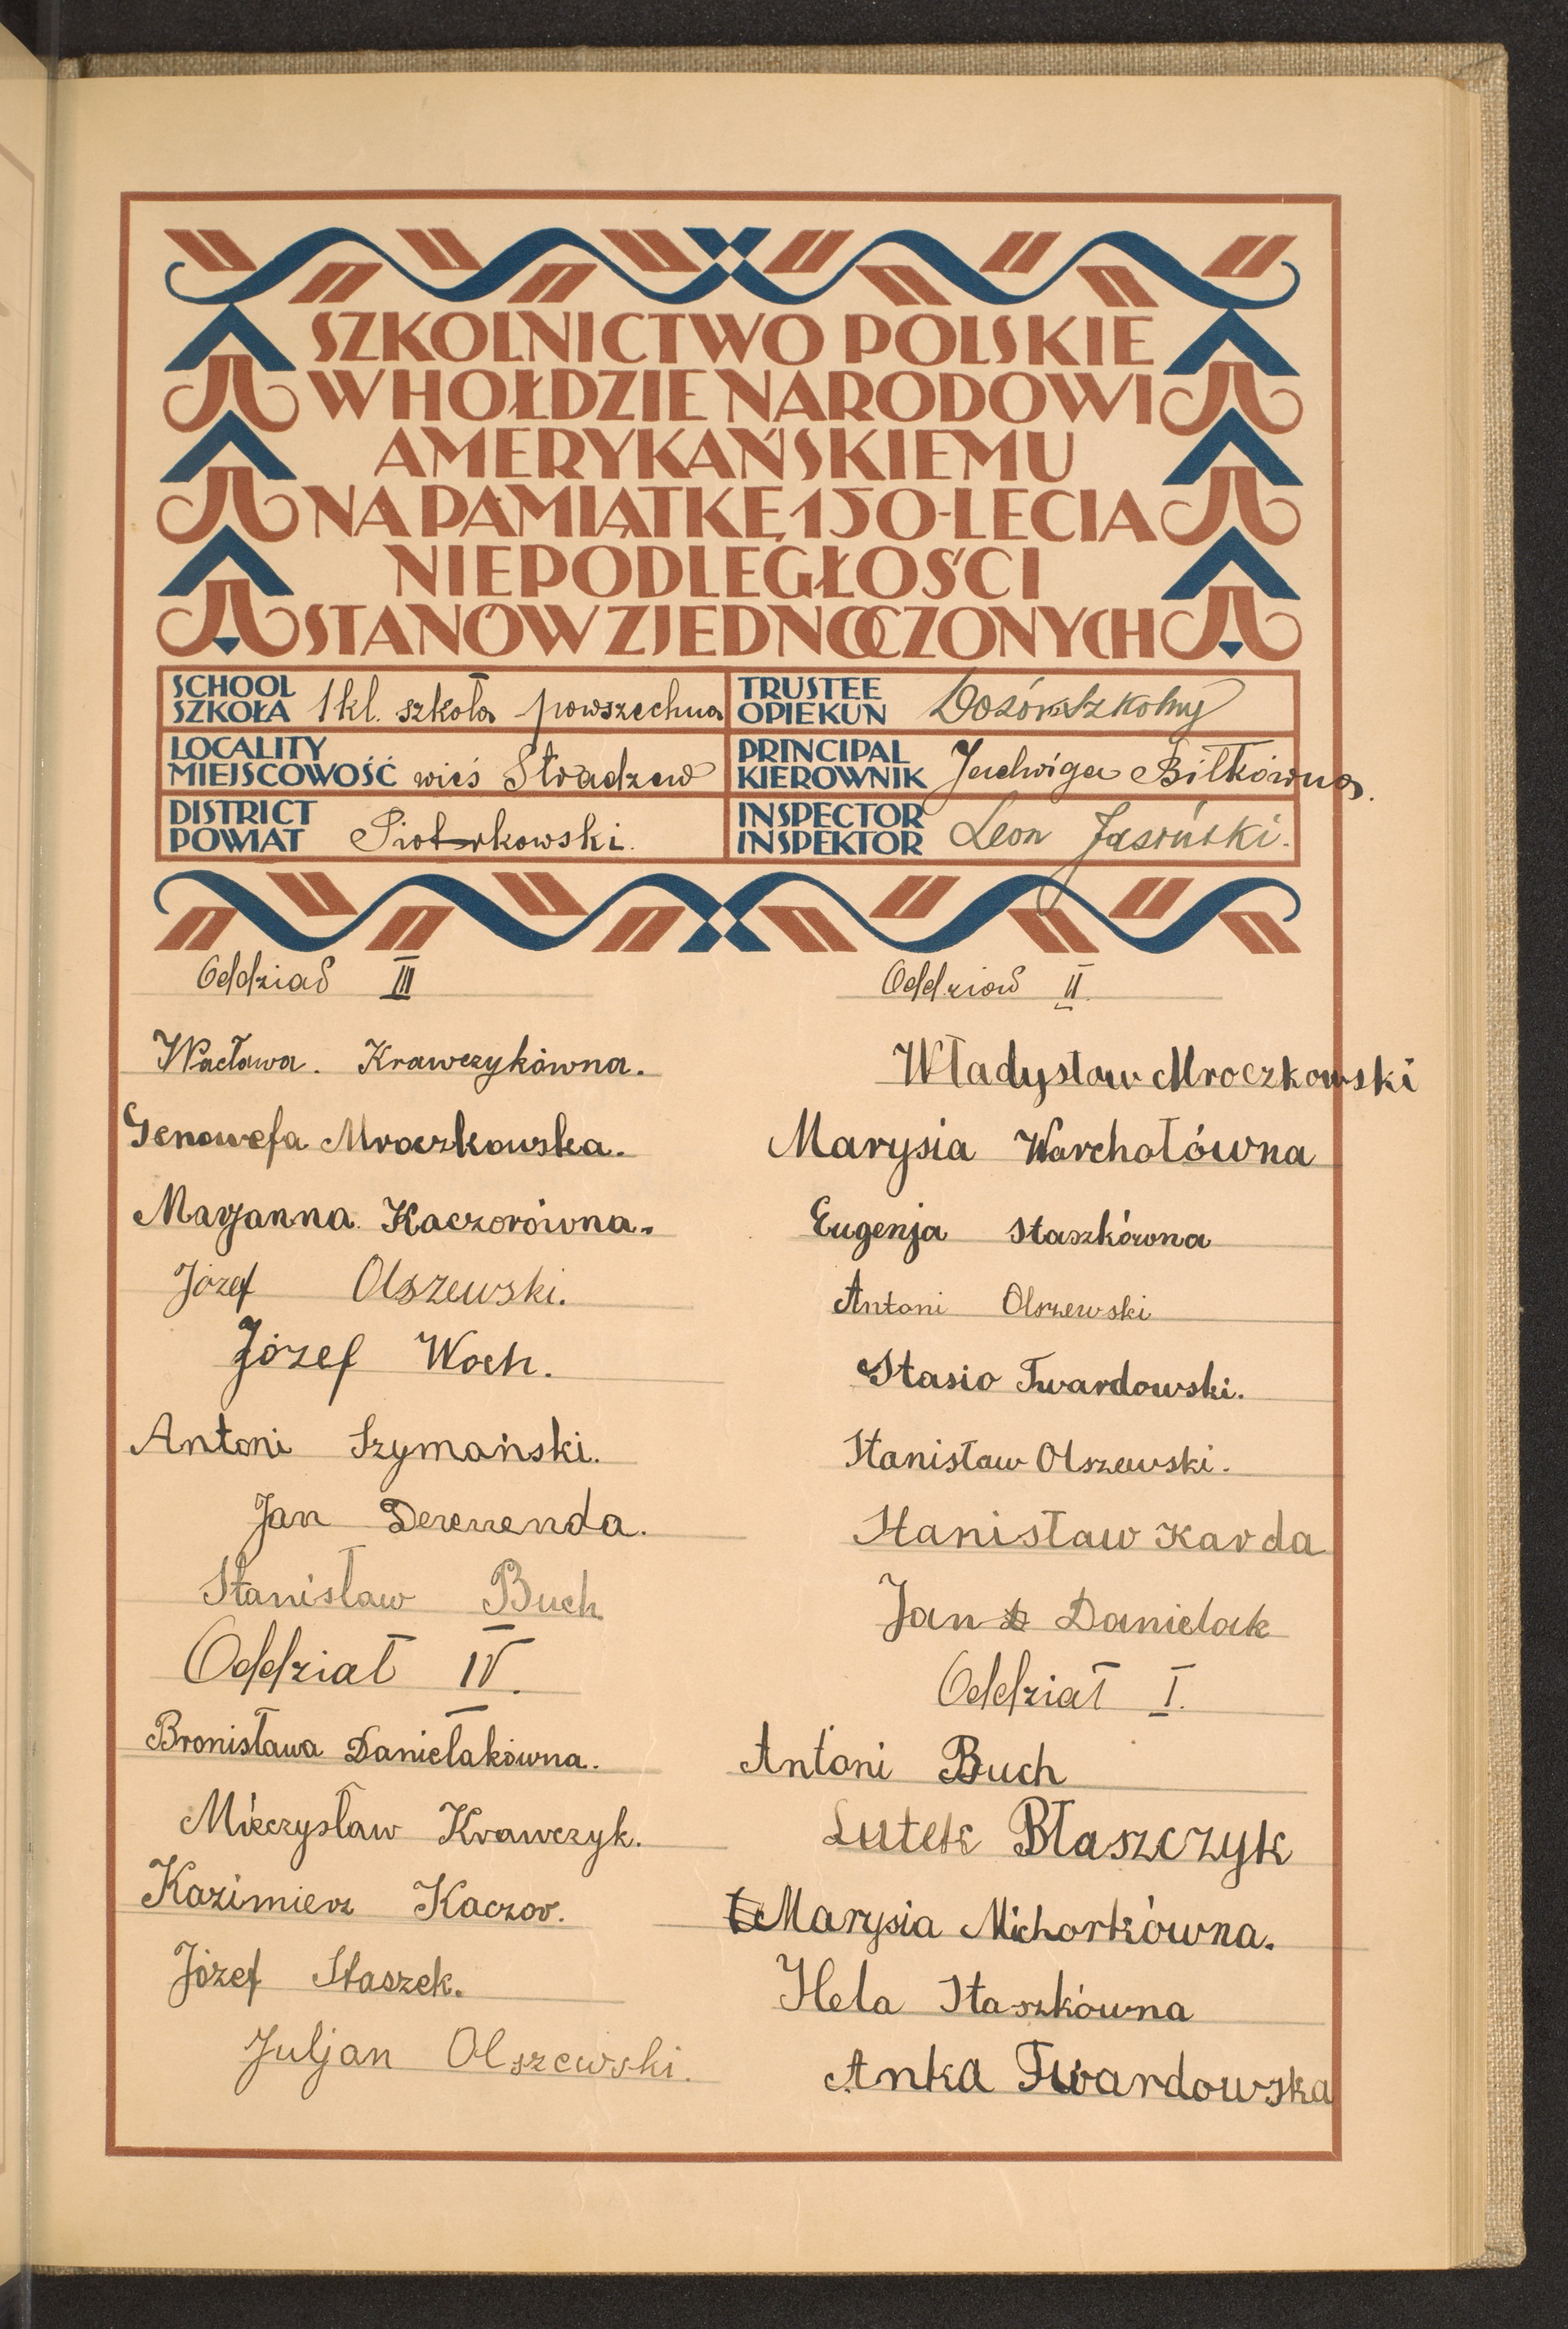 SZKOLNICTWO POLSKIE
W HOŁDZIE NARODOWI
AMERYKAŃSKIEMU
NA PAMIĄTKĘ 150-LECIA
NIEPODLEGŁOŚCI
STANÓW ZJEDNOCZONYCH
SCHOOL
SZKOŁA 1 kl. szkoła powszechna
TRUSTEE
OPIEKUN Dozór Szkolny
LOCALITY
MIEJSCOWOŚĆ wieś Stradzew
PRINCIPAL
KIEROWNIK Jadwiga Biłkówna.
DISTRICT
POWIAT Piotrkowski.
INSPECTOR
INSPEKTOR Leon Jasiński.
Oddział III
Wacława. Krawczykówna.
Genowefa Mroczkowska.
Marjanna Kaczorówna.
Józef Olszewski.
Józef Woch.
Antoni Szymański.
Jan Derenda.
Stanisław Buch
Oddział IV.
Bronisława Danielakówna.
Mieczysław Krawczyk.
Kazimierz Kaczor.
Józef Staszek.
Juljan Olszewski.
Oddział II.
Władysław Mroczkowski
Marysia Warchołówna
Eugenja Staszkówna
Antoni Olszewski
Stasio Twardowski.
Stanisław Olszewski.
Stanisław Karda
Jan Danielak
Oddział I.
Antoni Buch
Lutek Błaszczyk
Marysia Michorkówna.
Hela Staszkówna
Anka Twardowska